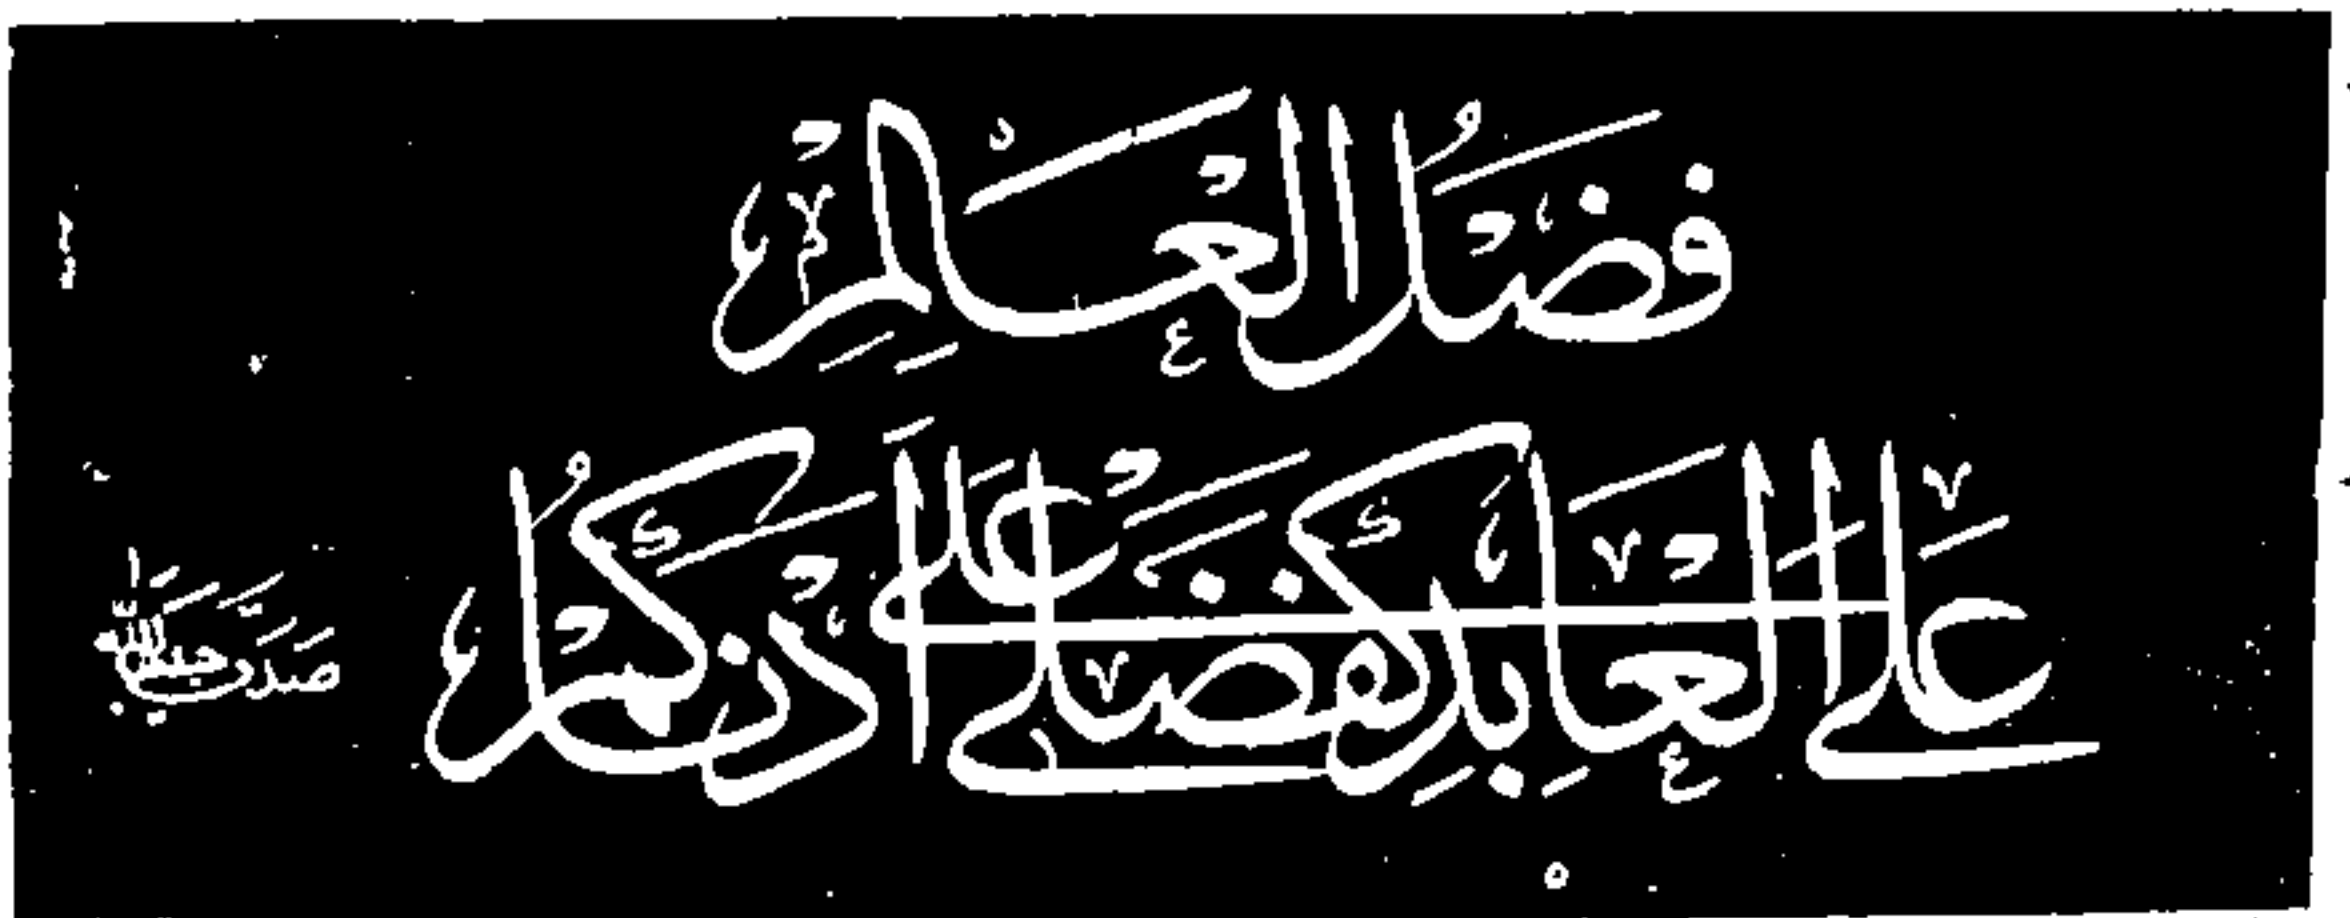 فَضْلُ الْعَالِمِ
عَلَى الْعَابِدِ كَفَضْلِي عَلَى أَدْنَاكُمْ
صَدَقَ حَبِيبُ اللّٰه